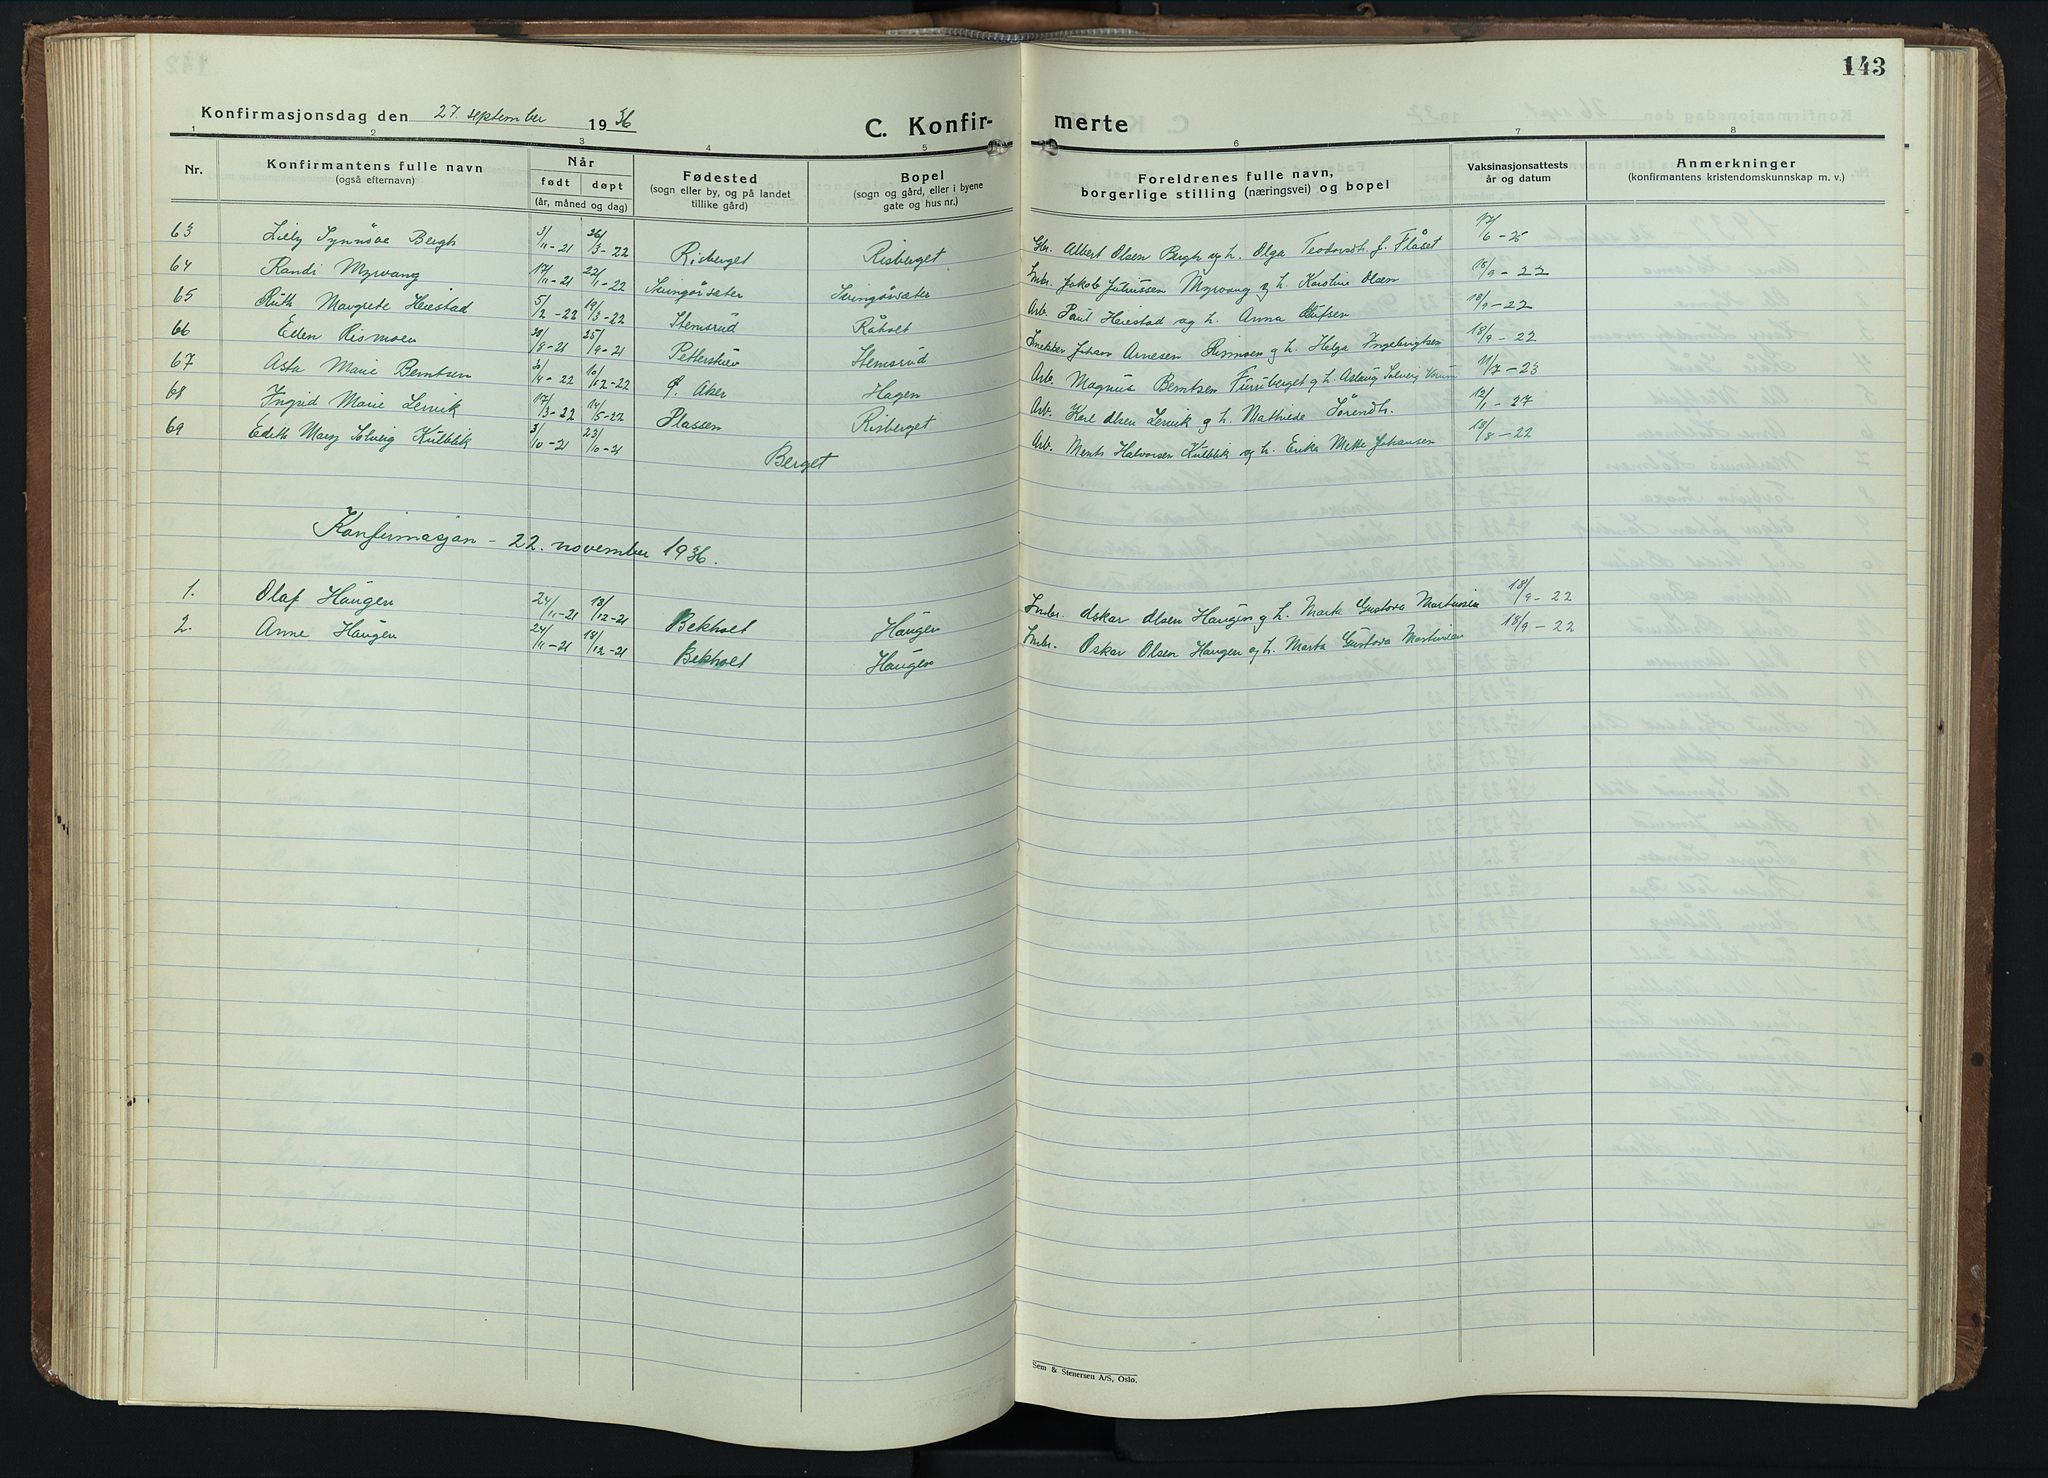 143
Konfirmasjonsdag den 27. september 1936
C. Konfir- merte
1 2 3 4 5 6 7 8
Nr. Konfirmantens fulle navn (også efternavn) Når født døpt (år, måned og dag) Fødested (sogn eller by, og på landet tillike gård) Bopel (sogn og gård, eller i byene gate og hus nr.) Foreldrenes fulle navn, borgerlige stilling (næringsvei) og bopel Vaksinasjonsattests år og datum Anmerkninger (konfirmantens kristendomskunnskap m. v.)
63 Lilly Synnøve Bergh 3/11-21 26/3-22 Risberget Risberget Gbr. Albert Olsen Bergh og h. Olga Teodorsdtr. f. Flåset 17/6-25
64 Randi Myrvang 17/11-21 22/1-22 Svingårsæter Svingårsæter Småbr. Jakob Julnussen Myrvang og h. Karoline Olsen 18/9-22
65 Ruth Margrete Heiestad 5/2-22 19/3-22 Stemsrud Råholt Arb. Paul Heiestad og h. Anna Olufsen 18/9-22
66 Eden Rismoen 30/8-21 25/9-21 Petterstuen Stemsrud Snekker Johan Arnesen Rismoen og h. Helga Ingebrigtsen 18/9-22
67 Asta Marie Berntsen 30/4-22 10/12-22 Ø. Aker Hagen Arb. Magnus Berntsen Furuberget og h. Aslaug Solveig 11/7-23
68 Ingrid Marie Lervik 17/3-22 14/5-22 Plassen Risberget Arb. Karl Olsen Lervik og h. Mathilde Sørensdtr. 12/1-27
69 Edith Mary Solveig Kulblik 3/10-21 23/10-21 Berget Arb. Ments Halvorsen Kulblik og h. Erika Mette Johansen 18/8-22
Konfirmasjon - 22. november 1936.
1. Olaf Haugen 24/11-21 18/12-21 Bekholt Haugen Småbr. Oskar Olsen Haugen og h. Marta Gustava Martinsen 18/9-22
2. Anne Haugen 24/11-21 18/12-21 Bekholt Haugen Småbr. Oskar Olsen Haugen og h. Marta Gustava Martinsen 18/9-22
Sem & Stenersen A/S, Oslo.